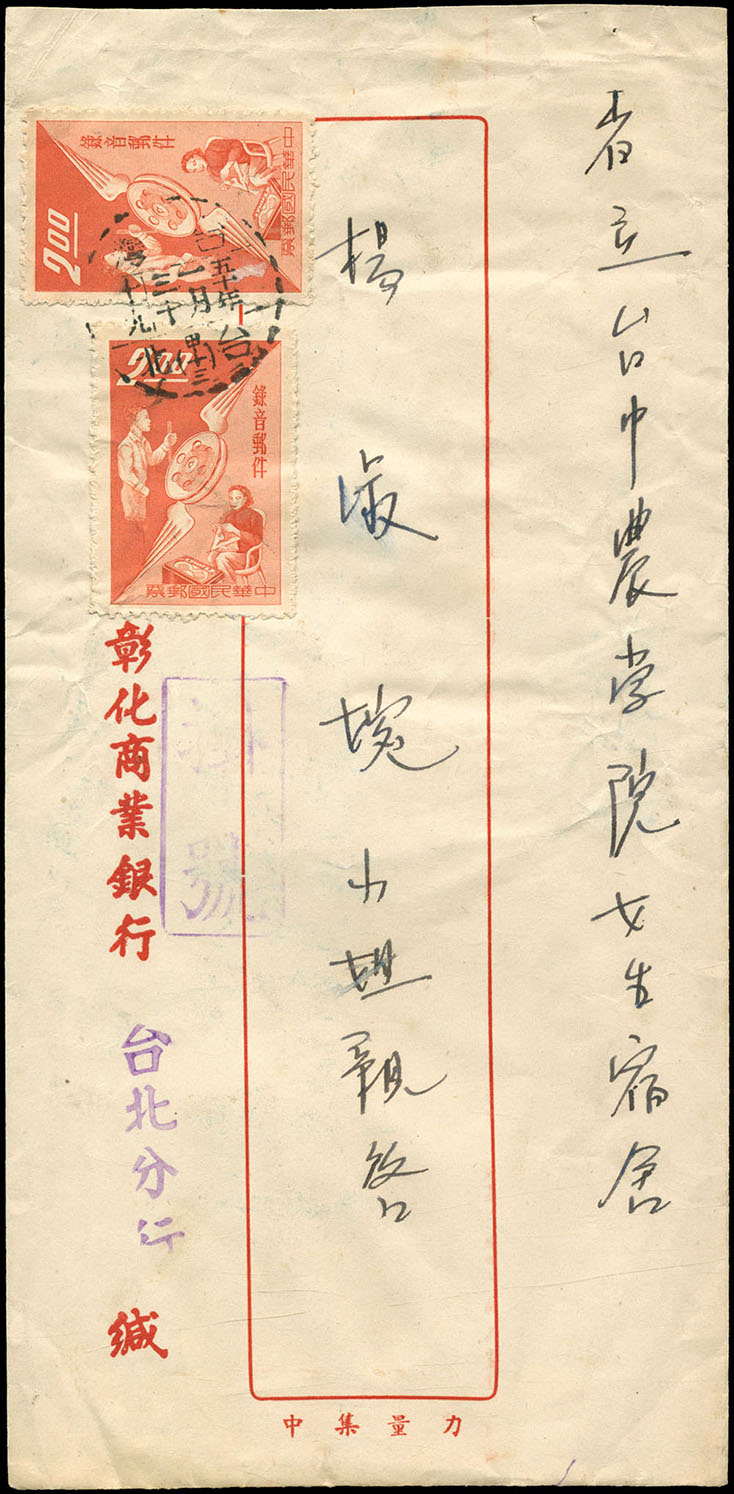 省立台中農学院女生宿舍
楊淑琬小姐親啓
彰化商業銀行
台北分行
緘
掛號
力量集中
錄音郵件
中華民國郵票
2.00
錄音郵件
中華民國郵票
2.00
五十年
一月
三十
台
北